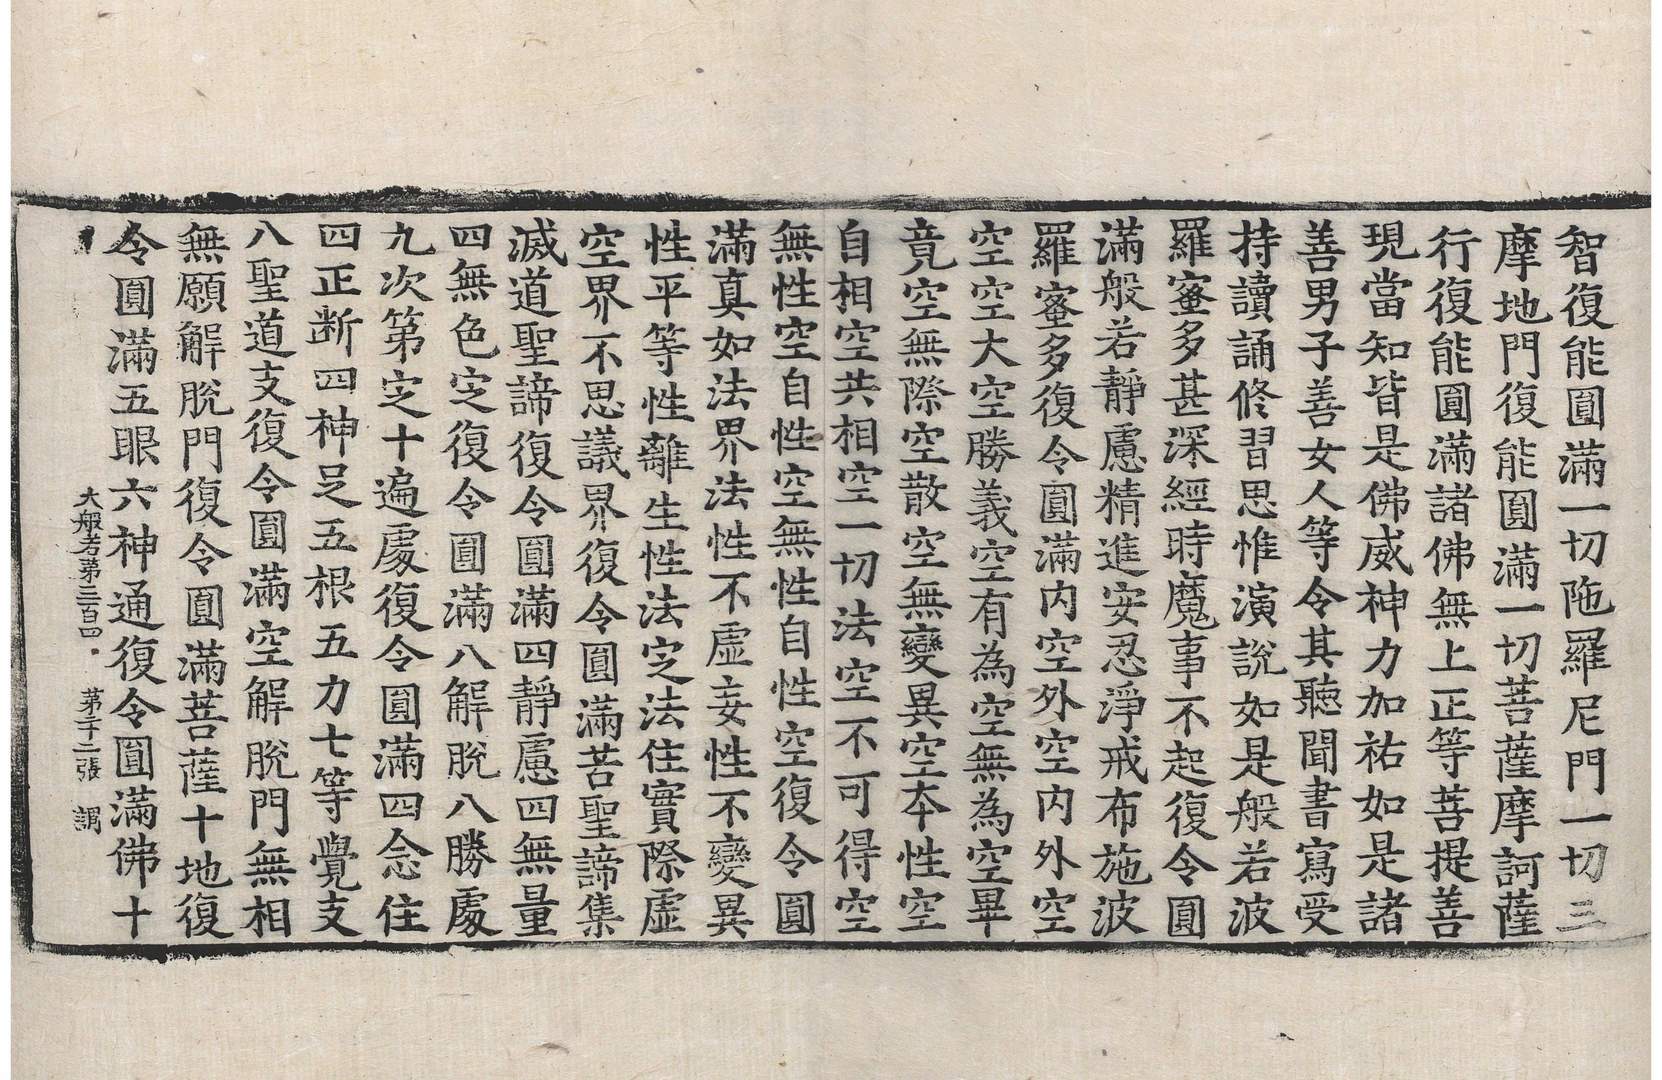 智復能圓滿一切陁羅尼門一切三
摩地門復能圓滿一切菩薩摩訶薩
行復能圓滿諸佛無上正等菩提善
現當知皆是佛威神力加祐如是諸
善男子善女人等令其聽聞書寫受
持讀誦修習思惟演說如是般若波
羅蜜多甚深經時魔事不起復令圓
滿般若靜慮精進安忍淨戒布施波
羅蜜多復令圓滿內空外空內外空
空空大空勝義空有為空無為空畢
竟空無際空散空無變異空本性空
自相空共相空一切法空不可得空
無性空自性空無性自性空復令圓
滿真如法界法性不虛妄性不變異
性平等性離生性法定法住實際虛
空界不思議界復令圓滿苦聖諦集
滅道聖諦復令圓滿四靜慮四無量
四無色定復令圓滿八解脫八勝處
九次第定十遍處復令圓滿四念住
四正斷四神足五根五力七等覺支
八聖道支復令圓滿空解脫門無相
無願解脫門復令圓滿菩薩十地復
令圓滿五眼六神通復令圓滿佛十
大般若第三百四 第二十二張 調